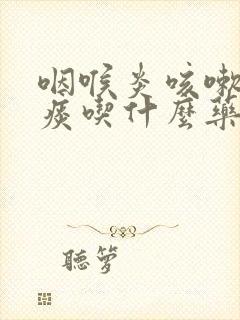 咽喉炎咳嗽
痰喫什麼藥
聽箩